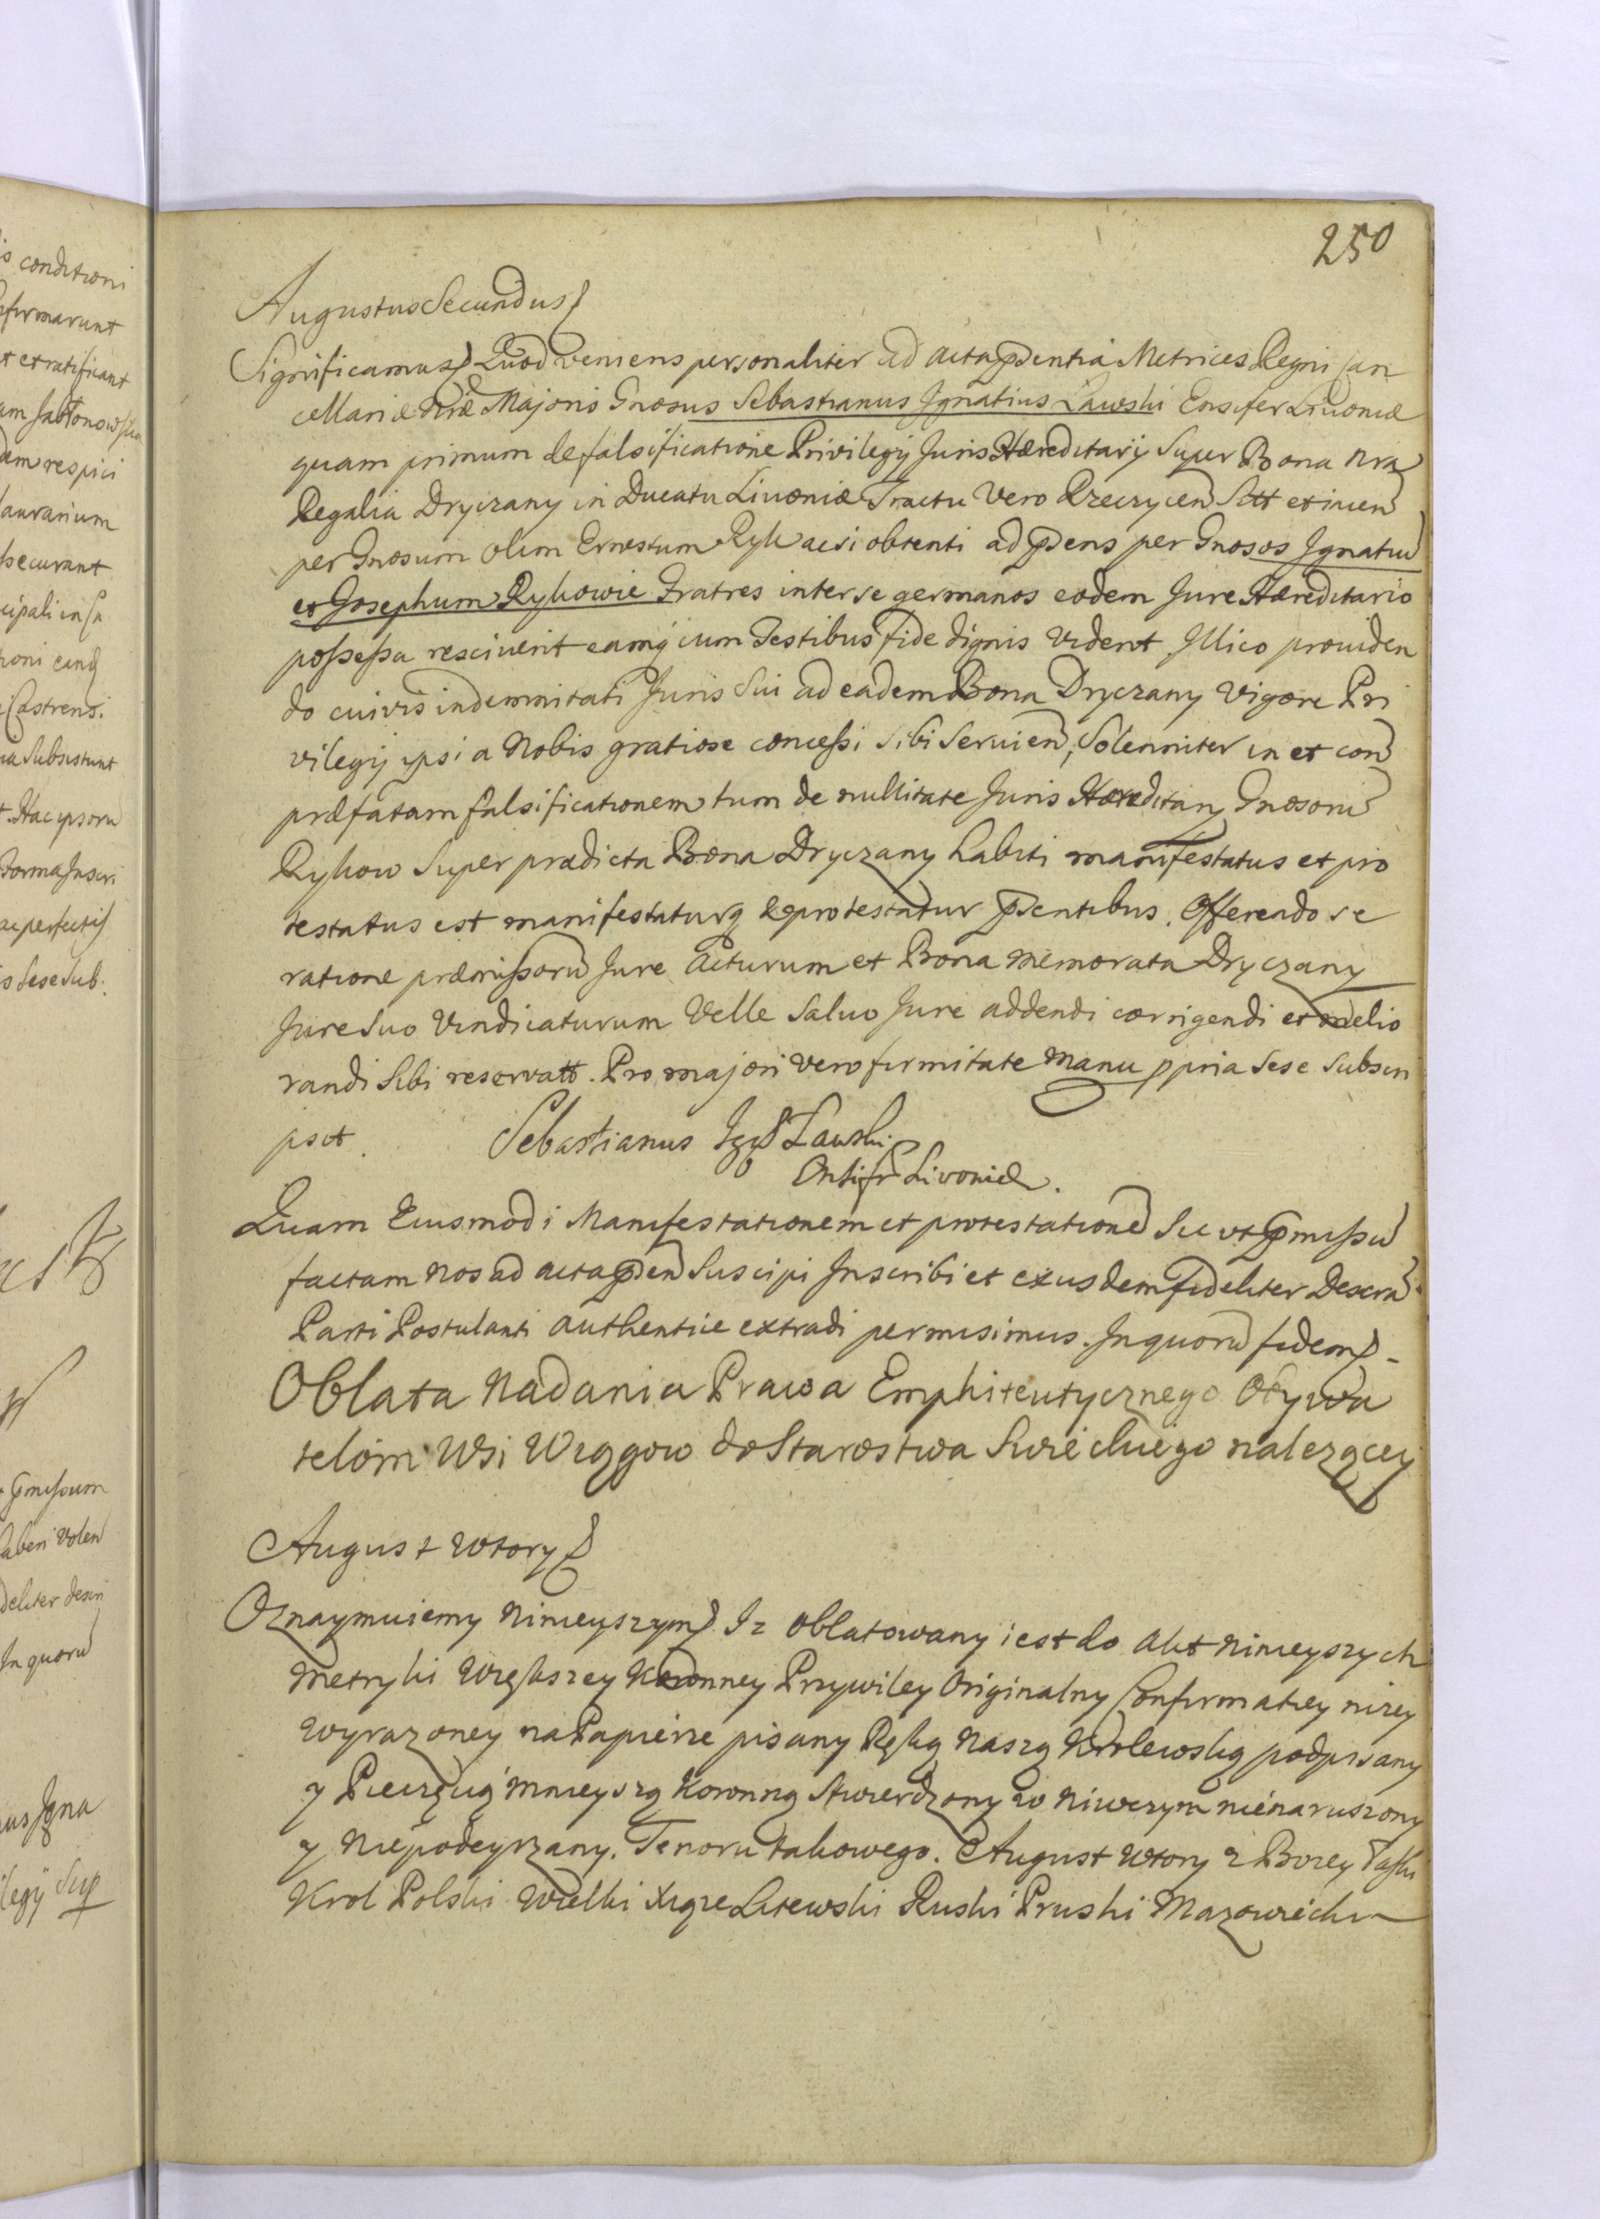 250
Augustus Secundus
Significamus Quod veniens personaliter ad acta pdentia Metrices Regni Can
cellariæ Nræ Majoris Gnosus Sebastianus Ignatius Ławski Ensifer Livoniæ
quam primum de falsificatione Privilegij Juris Hæreditarij Super Bona nra
Regalia Dryczany in Ducatu Livoniæ Tractu Vero Rzeczycen Sitt et iacen
per Gnosum olim Ernestum Ryk acsi obtenti ad pdens per Gnosos Ignatiu
et Josephum Rykowie Fratres inter se germanos eodem Jure Hæreditario
possessa resciverit eamq cum Testibus fide dignis viderit. Illico providen
do cuivis indemnitati Juris Sui ad eadem Bona Dryczany Vigore Pri
vilegij ipsi a Nobis gratiose concessi sibi servien, Solenniter in et con
præfatam falsificationem tum de nullitate Juris Hæreditarij Gnosoru
Rykow Super prædicta Bona Dryczany habiti manifestatus et pro
testatus est manifestaturq & protestatur pdentibus. Offerendo se
ratione præmissoru Jure Acturum et Bona memorata Dryczany
Jure Suo Vindicaturum Velle Salvo Jure addendi corrigendi et melio
randi Sibi reservatto. Pro majori vero firmitate Manu ppria sese subscri
psit. Sebastianus Ig Ławski
Ensifr Livoniæ.
Quam Eiusmodi Manifestationem et protestatione Sic ut pmissu
factam nos ad acta pden Suscipi Inscribi et ex iisdem fideliter Descra
Parti Postulanti authentice extradi permisimus. In quoru fidem
Oblata Nadania Prawa Emphiteutycznego Obywa
telom Wsi Wrggow do Starostwa Swieckiego nalezącey
August Wtory
Oznaymuiemy Ninieyszym Iz oblatowany iest do Akt Ninieyszych
Metryki Większey Koronney Przywiley Originalny Confirmatiey nizey
wyrazoney na Papierze pisany Ręką Naszą Krolewską podpisany
y Pieczęcią Mnieyszą Koronną Stwierdzony w Niwczym nienaruszony
y Niepodeyrzany. Tenoru takowego. August Wtory z Bozey Łaski
Krol Polski Wielki Xiąze Litewski Ruski Pruski Mazowiecki